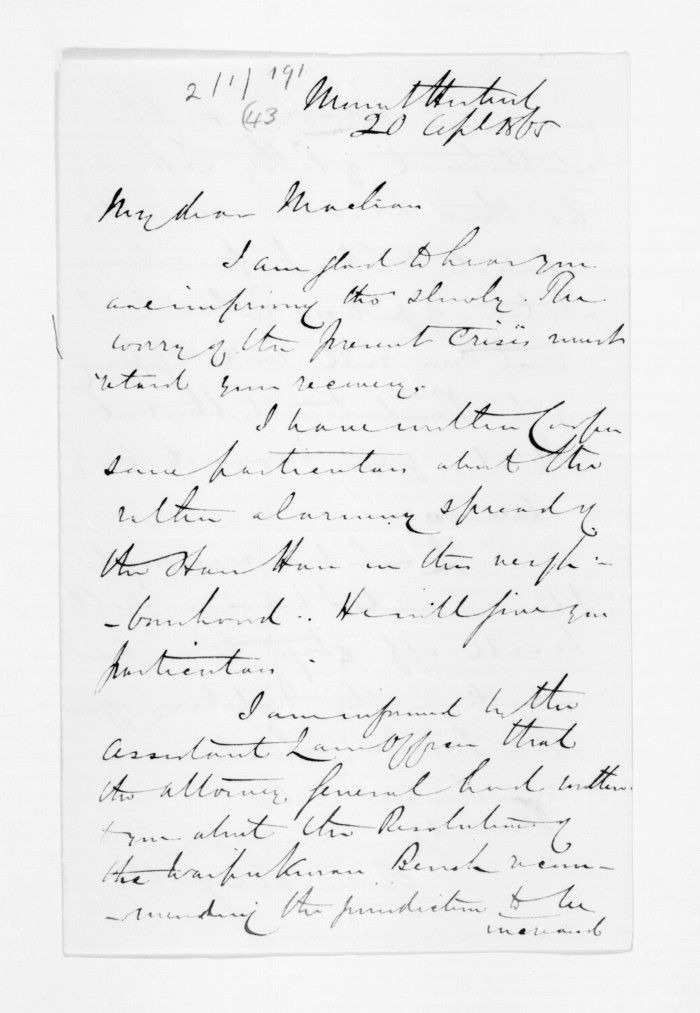 2/1/ 191
(43
Mount Herbert
20 Apl 1865
My dear Maclean
I am glad to hear you
are improving tho' slowly. The
worry of the present Crisis must
retard your recovery.
I have written Cooper
some particulars about the
rather alarming spread of
the Hau Hau in this neigh-
-bourhood.. He will give you
particulars.
I am informed by the
Assistant Law Officer that
the Attorney General had written
to you about the Resolution of
the Waipukurau Bench recom-
-mending the jurisdiction to be
increased